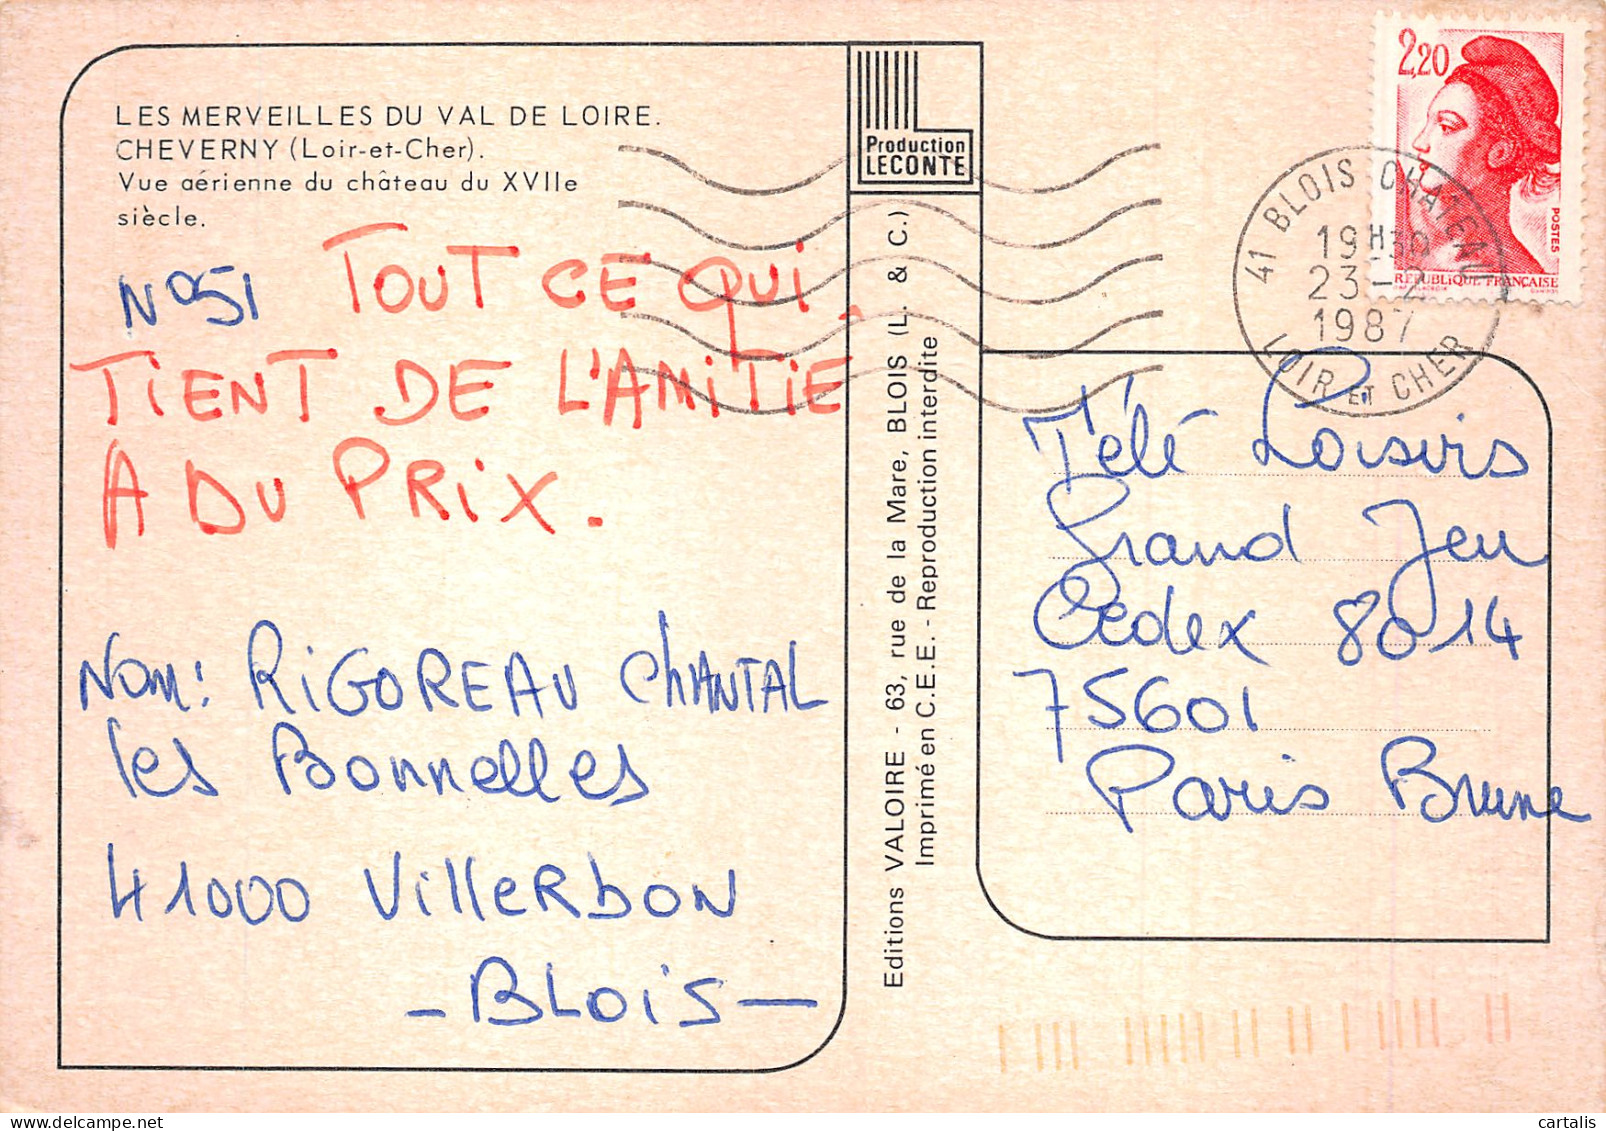 LES MERVEILLES DU VAL DE LOIRE.
CHEVERNY (Loir-et-Cher).
Vue aérienne du château du XVIIe
siècle.
N°51 TOUT CE QUI
TIENT DE L'AMITIE
A DU PRIX.
Nom: RIGOREAU CHANTAL
les Bonnelles
41000 VILLERBON
- BLOIS -
Production
LECONTE
Editions VALOIRE - 63, rue de la Mare, BLOIS (L. & C.)
Imprimé en C.E.E. - Reproduction interdite
2,20
POSTES
RÉPUBLIQUE FRANÇAISE
41 BLOIS CHATEAU
19H30
23-2
1987
LOIR ET CHER
Télé Loisirs
Grand Jeu
Cedex 8014
75601
Paris Brune
cartalis